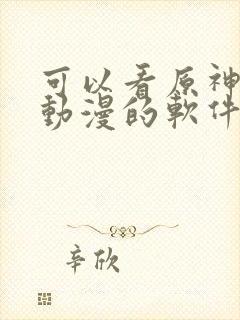 可以看原神
動漫的軟件
辛欣